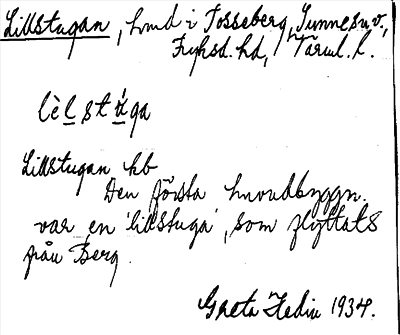 Lillstugan, hmd i Tosseberg, Sunne sn.v.,
Fryksd. hd, Värml. l.
lèlstúga
Lillstugan hb
Den första huvudbyggn.
var en 'lillstuga', som flyttats
från Berg.
Greta Hedin 1934.